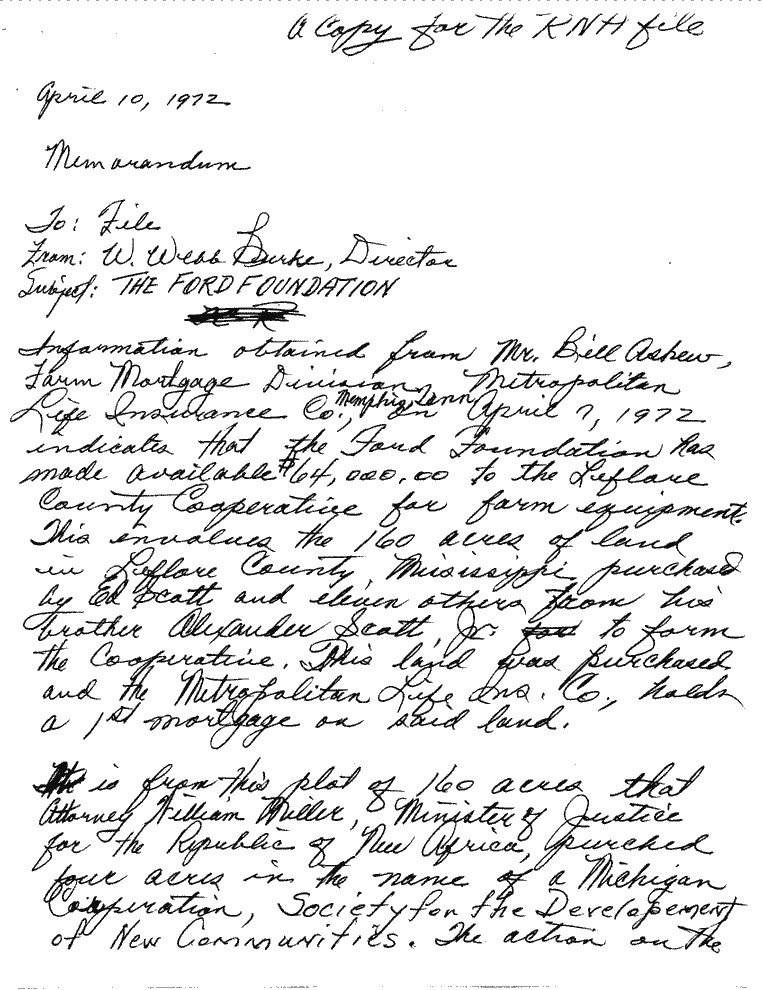 A Copy for the RNH file
April 10, 1972
Memorandum
To: File
From: W. Webb Burke, Director
Subject: THE FORD FOUNDATION
Information obtained from Mr. Bill Askew,
Farm Mortgage Division, Metropolitan
Life Insurance Co., Memphis, Tenn on April 7, 1972
indicates that the Ford Foundation has
made available $64,000.00 to the Leflore
County Cooperative for farm equipment.
This envolves the 160 acres of land
in Leflore County, Misissippi, purchased
by Ed Scott and eleven others from his
brother Alexander Scott, Jr. to form
the Cooperative. This land was purchased
and the Metropolitan Life Ins. Co., holds
a 1st mortgage on said land.
is from this plot of 160 acres that
Attorney William Miller, Minister of Justice
for the Republic of New Africa, purched
four acres in the name of a Michigan
Cooperation, Society for the Developement
of New Communities. The action on the